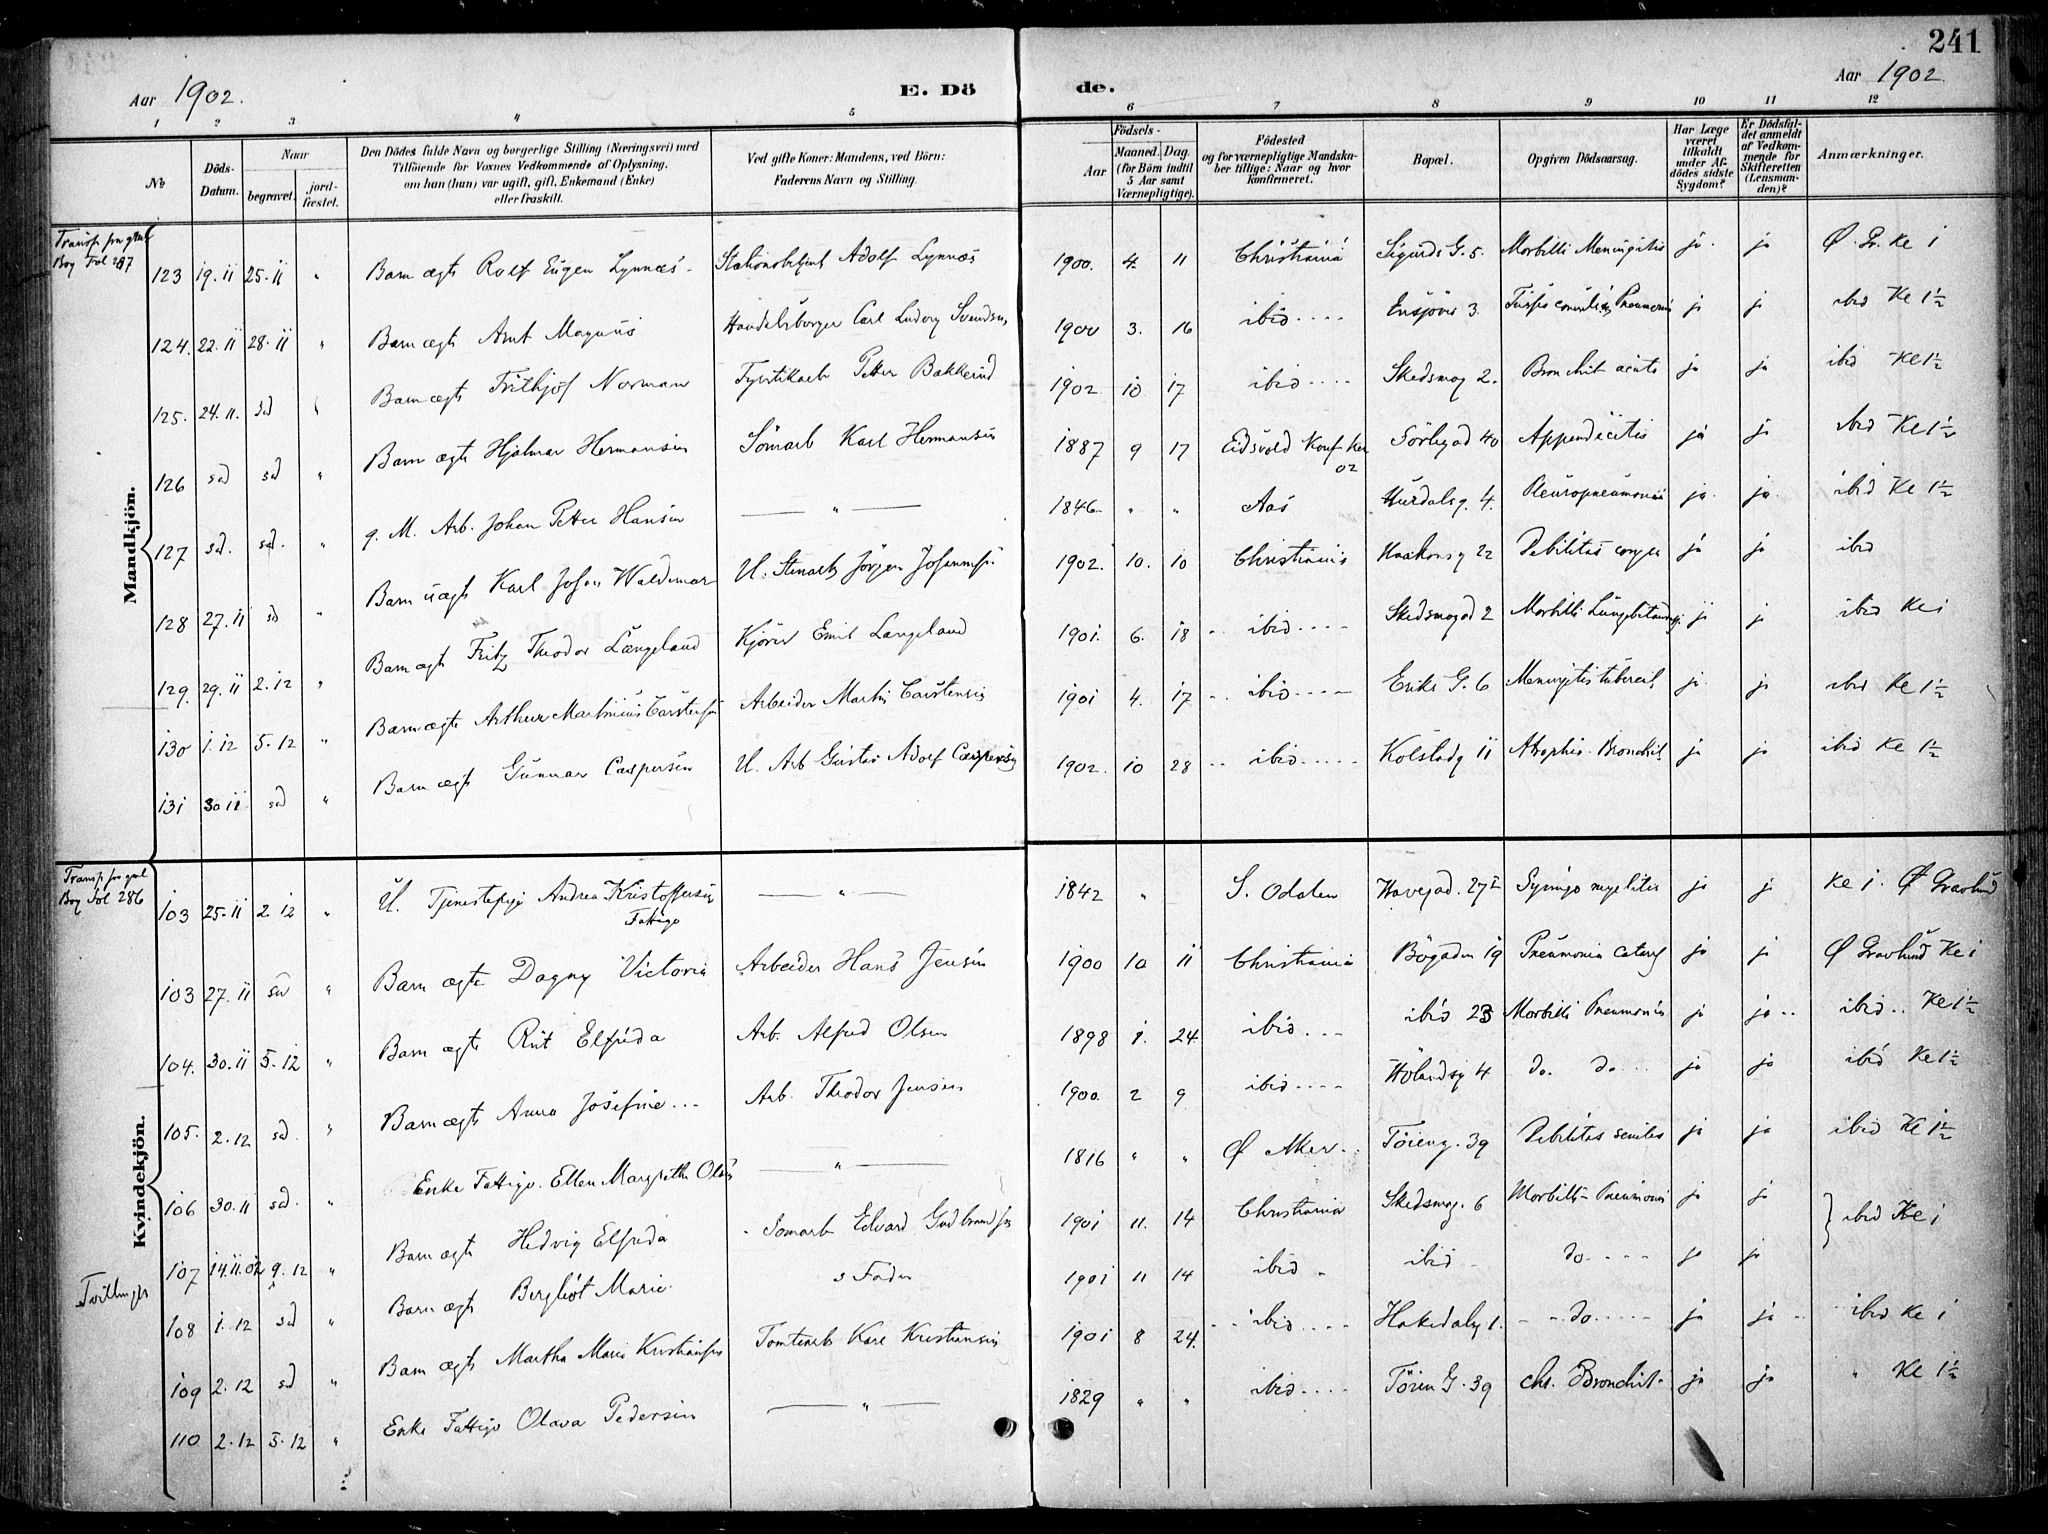 241
Aar 1902.
E. Dö de.
Aar 1902.
1 2 3 4 5 6 7 8 9 10 11 12
No
Döds-Datum.
Naar
begravet.
jord-fæstet.
Den Dödes fulde Navn og borgerlige Stilling (Næringsvei) med
Tilföiende for Voxnes Vedkommende af Oplysning,
om han (hun) var ugift, gift, Enkemand (Enke)
eller fraskilt.
Ved gifte Koner: Mandens, ved Börn:
Faderens Navn og Stilling.
Födsels-
Aar
Maaned. Dag.
(for Börn indtil
5 Aar samt
Værnepligtige).
Födested
og for værnepligtige Mandska-
ber tillige: Naar og hvor
konfirmeret.
Bopæl.
Opgiven Dödsaarsag.
Har Læge
været
tilkaldt
under Af-
dödes sidste
Sygdom?
Er Dödsfal-
det anmeldt
af Vedkom-
mende for
Skifteretten
(Lensman-
den)?
Anmærkninger.
Mandkjön.
123 19.11 25.11 " Barn ægte Rolf Eugen Lynnæs Adolf Lynnæs 1900. 4. 11 Christiania Sigurds G. 5. Morbilli Meningitis ja. ja Ø. Gr. Ke 1
124. 22.11 28.11 " Barn ægte Arnt Magnus Handelsborger Carl Ludvig Svendsen 1900 3. 16 ibid Ensjövei 3. Pneumoni ja ja ibid Ke 1½
125. 24.11. sd " Barn ægte Frithjof Norman Petter Bakkerud 1902 10 17 ibid Skedsmog 2. Bronchit acuta ja ja ibid Ke 1½
126 sd sd " Barn ægte Hjalmar Hermansen Sömarb Karl Hermansen 1887 9 17 Eidsvold Konf. 02 Sörligad 40 Appendicitis ja ja ibid Ke 1½
127 sd. sd. " g. M. Arb. Johan Petter Hansen " 1846 " " Aas Hurdalsg. 4. Pleuropneumoni ja. ja. ibid Ke 1½
128 27.11 sd " Barn uægte Karl Johan Waldemar U. Stenarb Jörgen Johannesen 1902. 10. 10 Christiania Haakonsg 22 Debilitas congen ja ja ibid
129. 29.11 2.12 " Barn ægte Fritz Theodor Længeland Kjörer Emil Langeland 1901. 6. 18 ibid Skedsmogd 2 Morbilli Lungebetændelse ja ja ibid Ke 1
130 1.12 5.12 " Barn ægte Arthur Martinius Carstensen Arbeider Martin Carstensen 1901 4. 17 ibid Eriks G. 6 Meningitis tubercul. ja ja ibid Ke 1½
131 30 11 sd " Barn ægte Gunnar Caspersen U. Arb Gustav Adolf Caspersen 1902. 10 28 ibid Kolstadg 11 Atrophia. Bronchit. ja ja ibid Ke 1½
Kvindekjön.
103 25.11 2.12 " U. Tjenestepige Andrea Kristoffersen Fattige " 1842 " S. Odalen Syringo myelitis ja ja Ke 1. Ø Gravlund
103 27.11 sd " Barn ægte Dagny Victoria Arbeider Hans Jensen 1900 10 11 Christiania Bögaden 19 Pneumonia catarrh ja ja Ø Gravlund Ke 1
104. 30.11 5.12 " Barn ægte Rut Elfrida Arb. Alfred Olsen 1898 1. 24 ibid ibid 23 Morbilli Pneumonia ja ja ibid Ke 1½
105. 2.12 sd " Barn ægte Anna Josefine Arb. Theodor Jensen 1900. 2 9 ibid Hölandsg 4 do. do. ja ja ibid Ke 1½
106 30.11 sd. " Enke Fattige. Ellen Margrethe Olsen " 1816 " " Ø Aker Töieng. 39 Debilitas senilis ja ja ibid Ke 1½
107 14.11.02 9.12 " Barn ægte Hedvig Elfrida Somarb Edvard Gudbrandsen 1901 11. 14 Christiania Skedsmog. 6 Morbilli - Pneumoni ja ja ibid Ke 1
Tvillinger
108 1.12 sd " Barn ægte Bergliot Marie s Fader 1901 11 14 ibid ibid do ja ja
109 2.12 sd " Barn ægte Martha Marie Kristiansen Tomtearb Karl Kristiansen 1901 8 24. ibid Hakedalsg 1. do ja ja ibid Ke 1
110 2.12 5.12 " Enke Fattige Olava Pedersen " 1829 " " ibid Töien G. 39 chr. Bronchit ja ja " Ke 1½